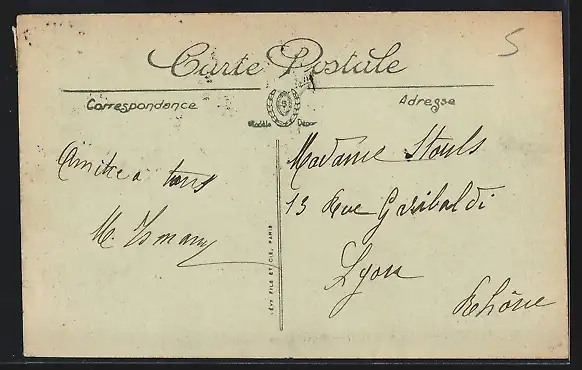 S
Carte Postale
Correspondance
Adresse
Modèle Déposé
Amitié a tous
M.
Madame Stouls
13 Rue Garibaldi
Lyon
Rhône
LÉVY FILS ET CIE, PARIS